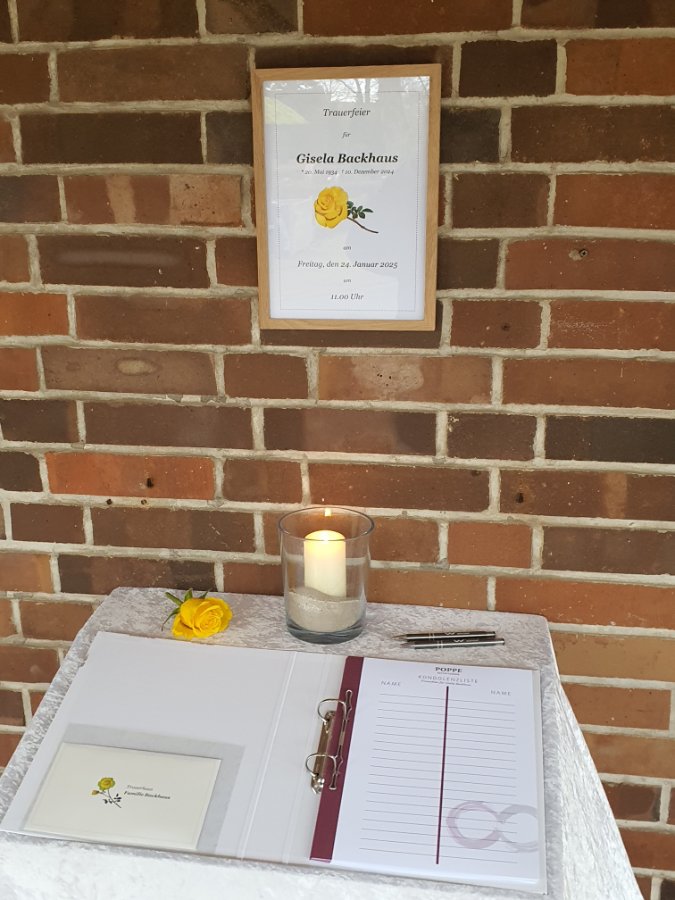 Trauerfeier
für
Gisela Backhaus
* 20. Mai 1934 † 10. Dezember 2024
am
Freitag, den 24. Januar 2025
um
11.00 Uhr
POPPE
KONDOLENZLISTE
NAME
NAME
Trauerhaus
Familie Backhaus